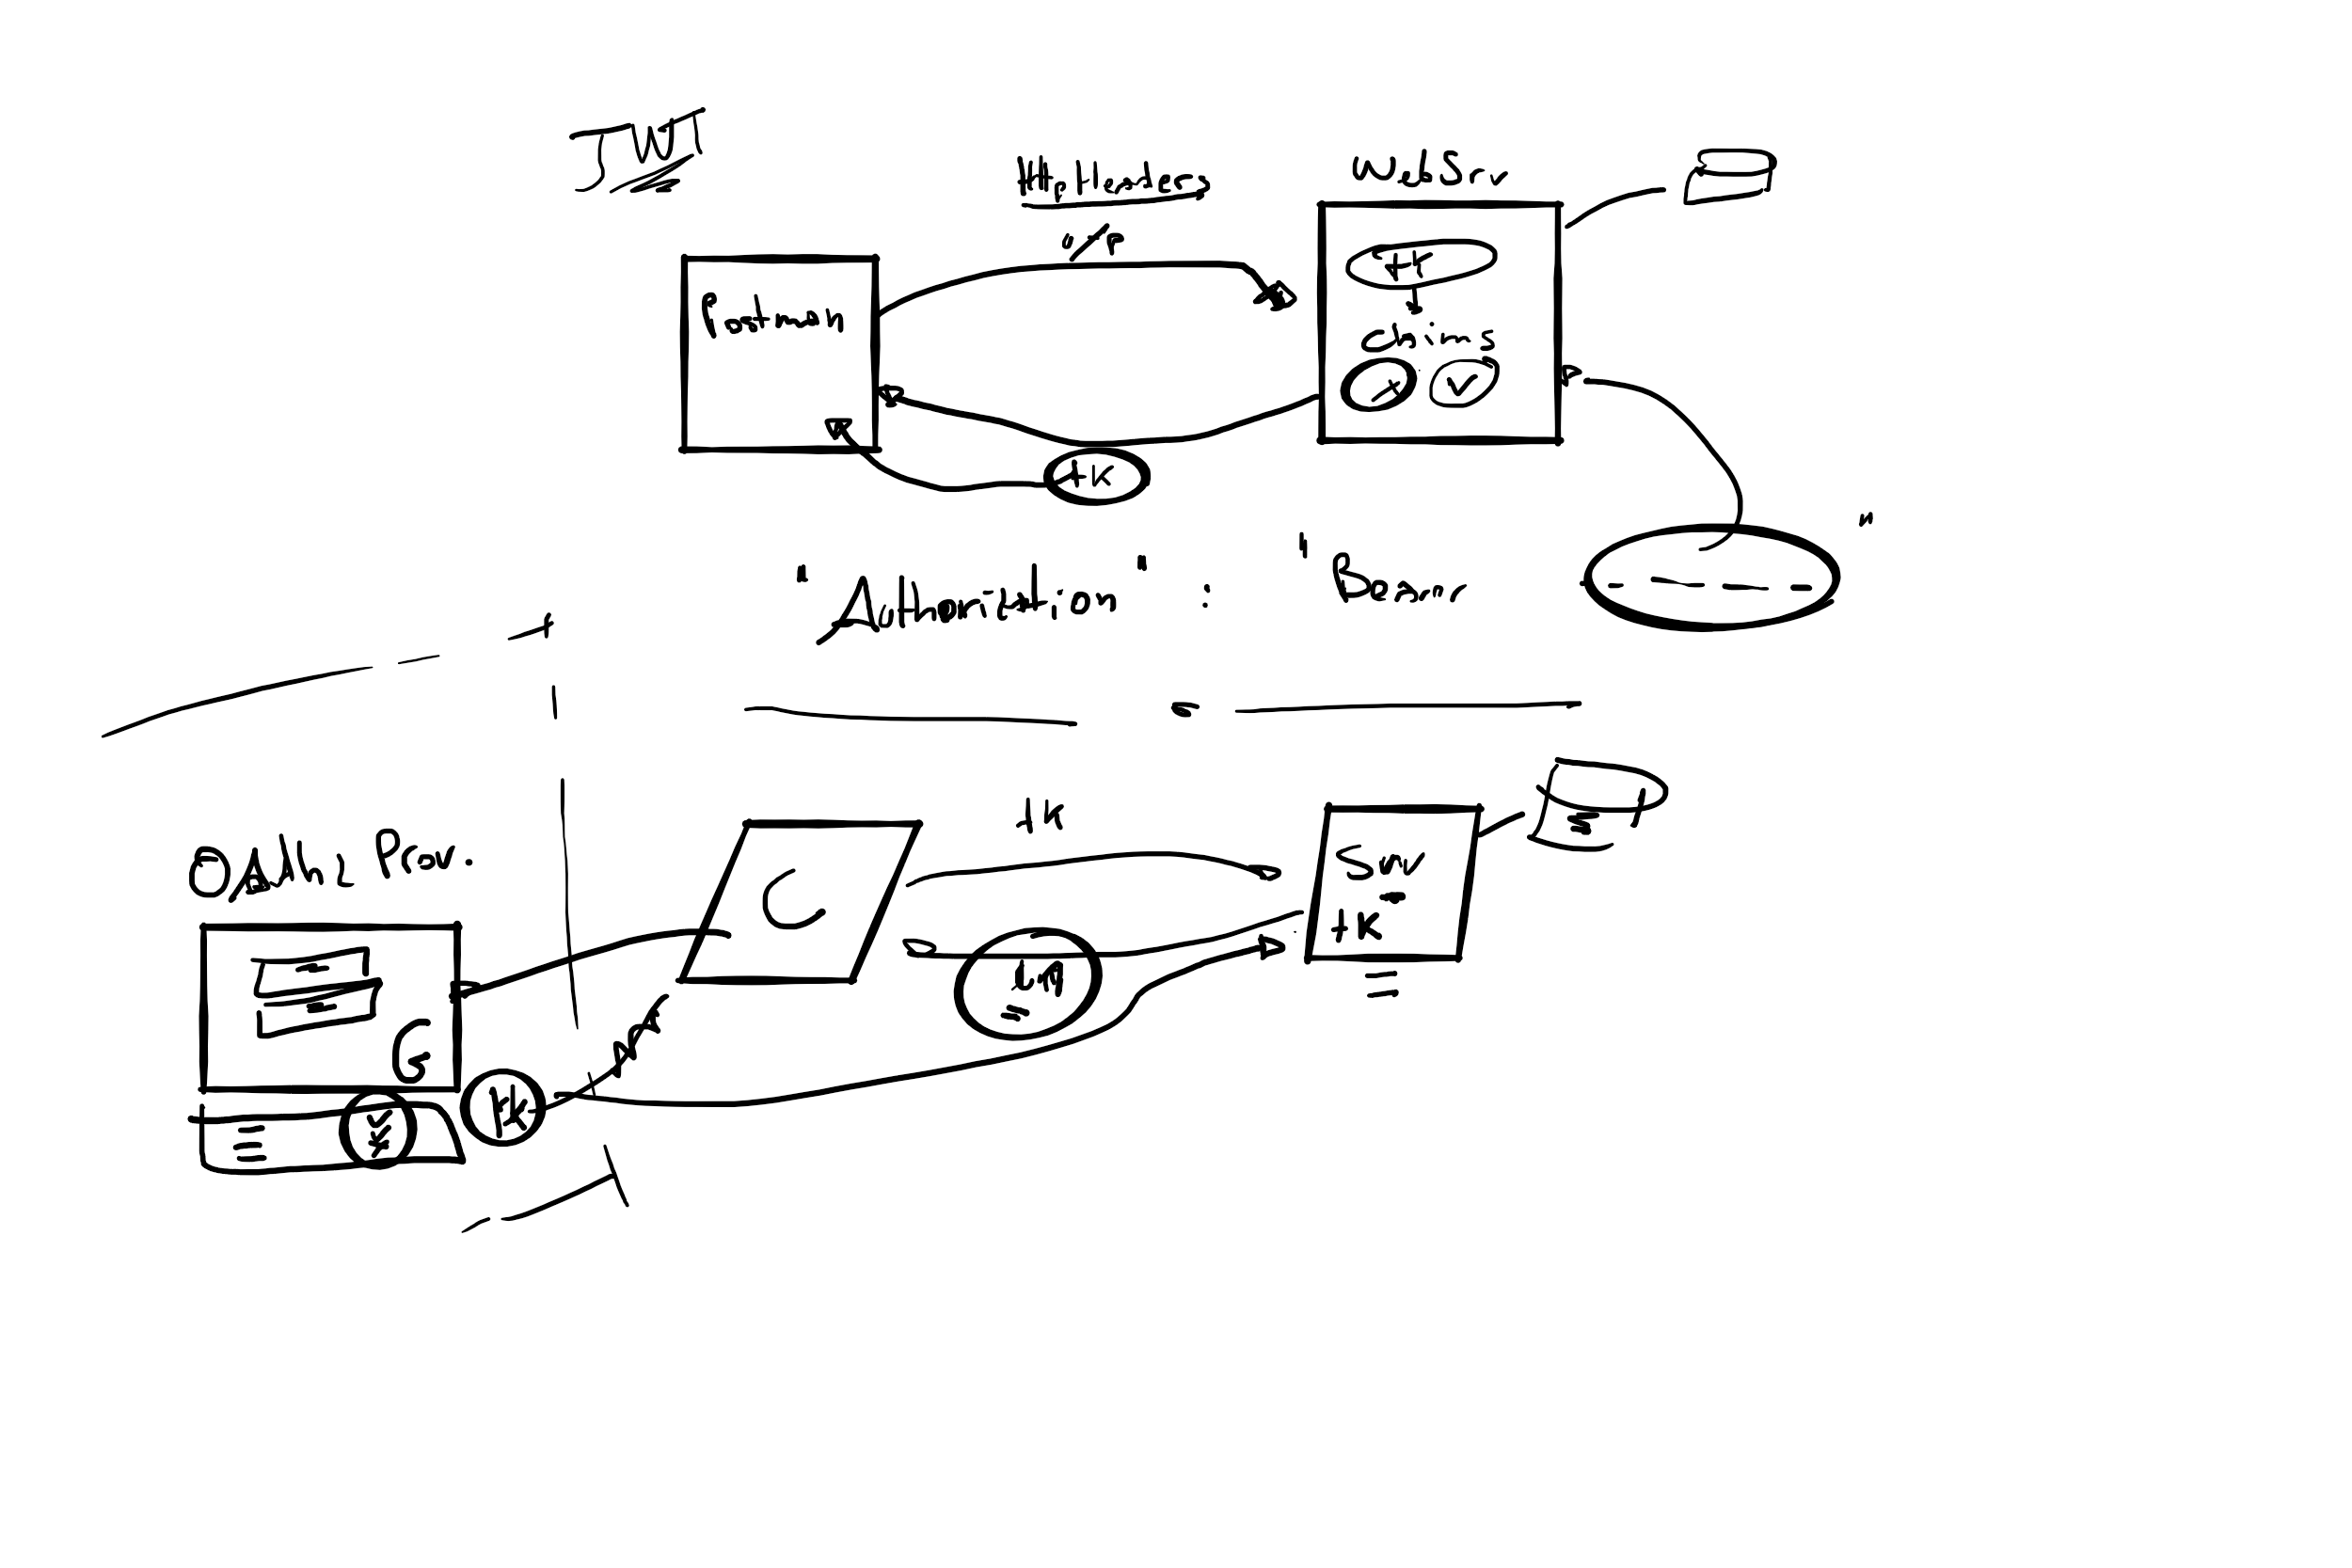 JWT
Http Headers
WebSrv
u/p
tk
Postman
claims
tk
"Authorization" : "Bearer
"
tk
OAuth2 Prov.
C
Srv
tk
G
tk